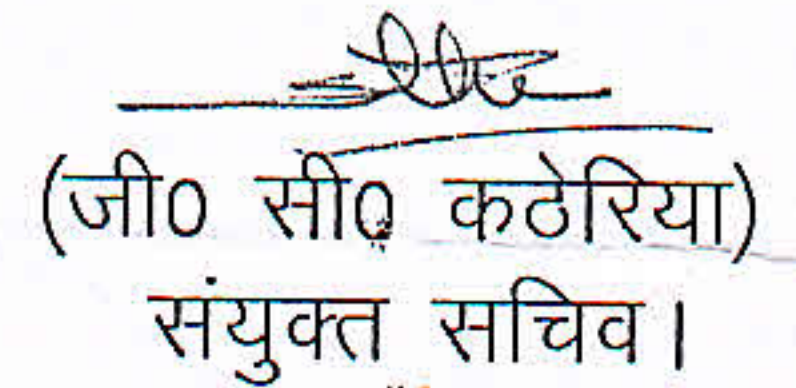 (जी0 सी0 कठेरिया)
संयुक्त सचिव।